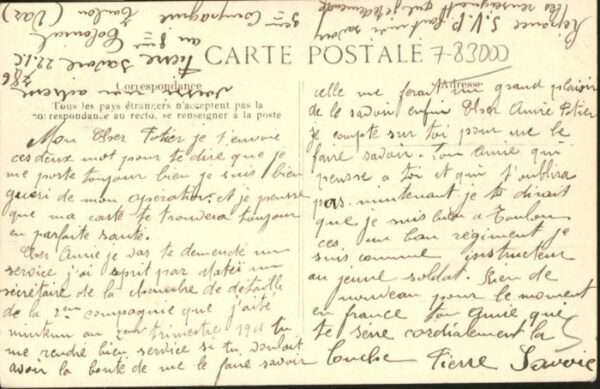 CARTE POSTALE
7-83000
Correspondance
Adresse
Tous les pays étrangers n'acceptent pas la
correspondance au recto, se renseigner à la poste
Mon Cher Potier je t'envoie
ces deux mot pour te dire que je
me porte toujour bien je suis bien
gueri de mon operation. et je pensse
que ma carte te trouvera toujour
en parfaite santé.
Cher Amie je vas te demendé un
service j'ai aprit par
secrétaire de la chambre de détaille
de la 2eme compagnie que j'aité
au 2eme trimestre 19 tu
me rendré bien service si tu voulait
avoir la bonté de me le faire savoir
celle me ferai un grand plaisir
de le savoir enfin Cher Amie Potier
je compte sur toi pour me le
faire savoir. Ton Amie qui
pensse a toi et qui t'oublira
pas. mintenant je te dirait
que je suis bien a Toulon
ces un bon régiment je
suis comme instructeur
au jeune soldat. Rien de
nouveau pour le moment
en france ton Amie qui
te sére cordialement la
louche Pierre Savoie
Pierre Savoie
au 8eme Colonial
3eme Compagnie
Toulon (Var)
Réponse S.V.P.